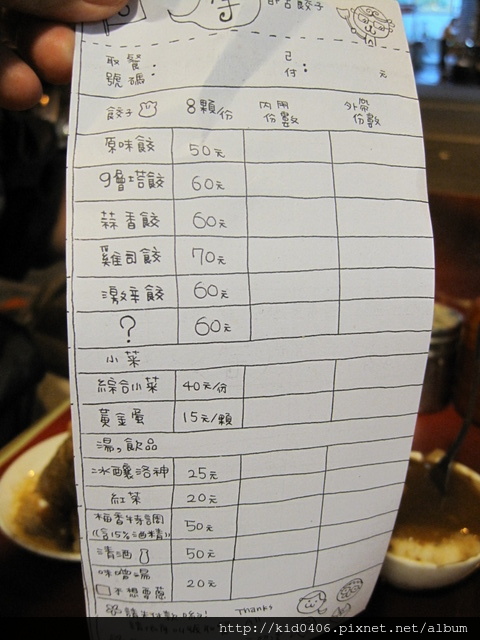 取餐號碼： 已付： 元
餃子 8顆/份 內用份數 外帶份數
原味餃 50元
9層塔餃 60元
蒜香餃 60元
雞司餃 70元
激辛餃 60元
? 60元
小菜
綜合小菜 40元/份
黃金蛋 15元/顆
湯,飲品
冰釀洛神 25元
紅茶 20元
梅香特調 50元
(含15%酒精)
清酒 50元
味噌湯 20元
不想要蔥
Thanks
http://kid0406.pixnet.net/album